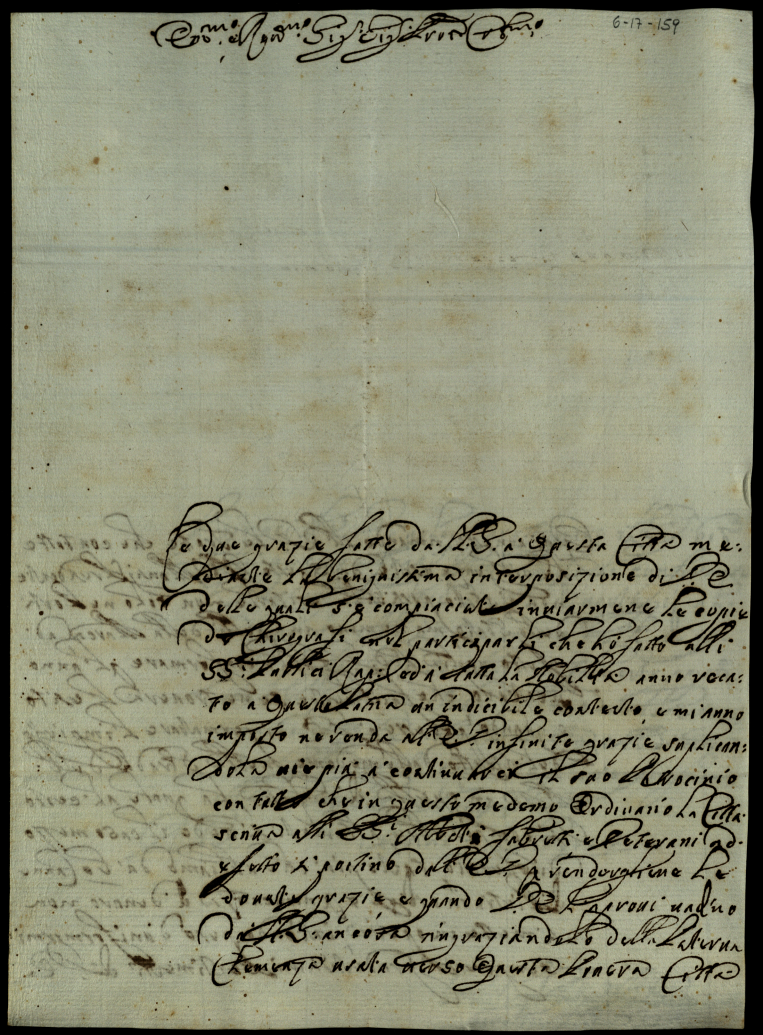 Em.mo e R.mo Sig.r Sig.r Pron. Col.mo
6-17-159
Le due grazie fatte da N. S. a questa Città me:
diante la benignissima interposizione di V. E.
delle quali s'è compiaciuta inviarmene le copie
de Chirografi nel participarli che hò fatto alli
SS.ri Publici Rap. ed à tutta la Nobiltà anno reca:
to a queste un indicibile contento, e mi anno
imposto ne renda all' E. V. infinite grazie suplican:
dola a continuarci il suo Patrocinio
con tutto che in questo medemo Ordinario la Città
scriva alli SS.ri Fabretti e Veterani ad
effetto si portino dall' E. V. p rendergliene le
douute grazie e quando V. E. l'aprovi vadino
da N. S. ancora ringraziandolo della Paterna
Clemenza usata verso questa povera Città